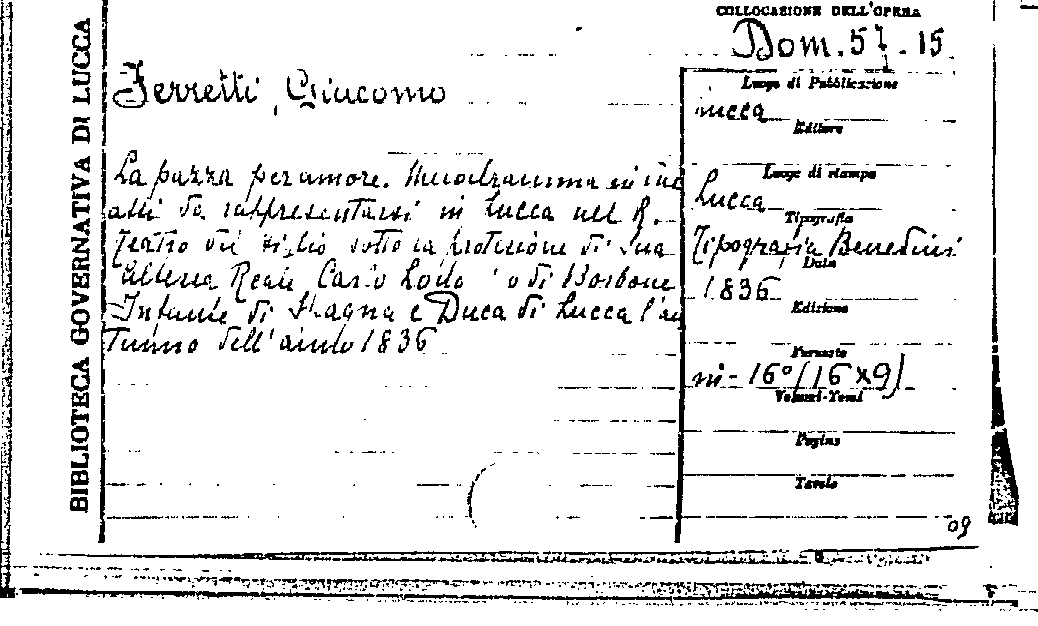 BIBLIOTECA GOVERNATIVA DI LUCCA
COLLOCAZIONE DELL'OPERA
Dom. 57. 15
Ferretti, Giacomo
La pazza per amore. Melodramma in due
atti da rappresentarsi in Lucca nel R.
Teatro del Giglio sotto la protezione di Sua
Altezza Reale Carlo Lodo di Borbone
Infante di Spagna e Duca di Lucca l'au
tunno dell'anno 1836
Luogo di Pubblicazione
Lucca
Editore
Luogo di stampa
Lucca
Tipografia
Tipografia Benedini
Data
1836
Edizione
Formato
in-16° (16x9)
Volumi-Tomi
Pagine
Tavole
09